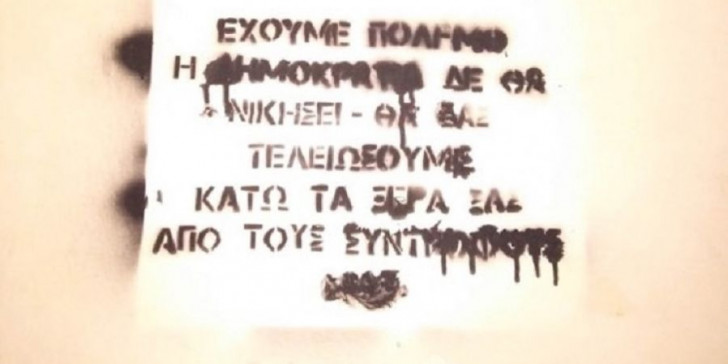 ΕΧΟΥΜΕ ΠΟΛΕΜΟ
Η ΔΗΜΟΚΡΑΤΙΑ ΔΕ ΘΑ
ΝΙΚΗΣΕΙ - ΘΑ ΣΑΣ
ΤΕΛΕΙΩΣΟΥΜΕ
ΚΑΤΩ ΤΑ ΞΕΡΑ ΣΑΣ
ΑΠΟ ΤΟΥΣ